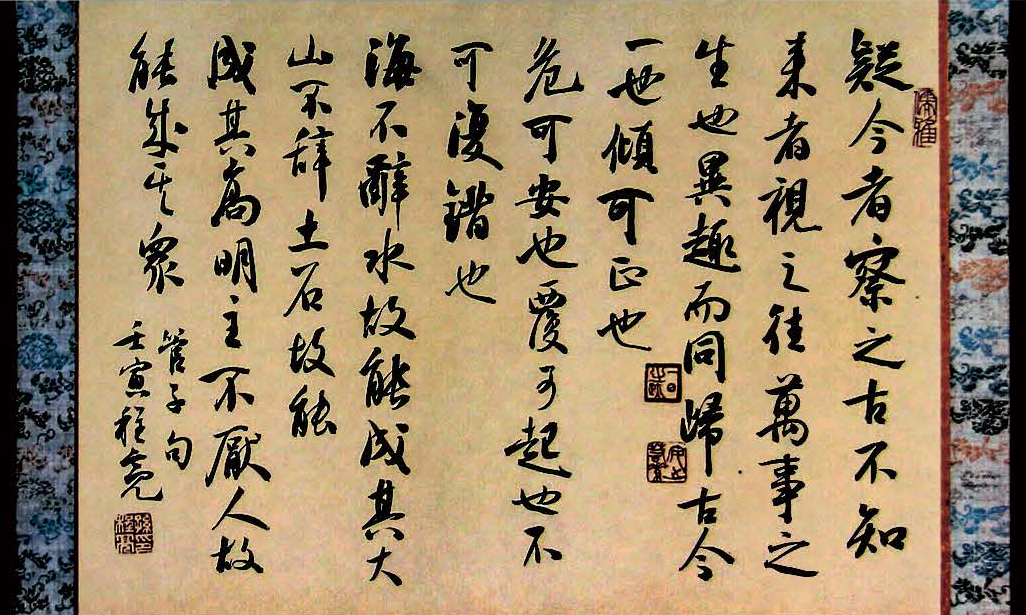 儒雅
疑今者察之古不知
来者視之往萬事之
生也異趣而同歸古今
一也傾可正也
危可安也覆可起也不
可復錯也
海不辭水故能成其大
山不辞土石故能
成其高明主不厭人故
能成其眾
管子句
壬寅程亮